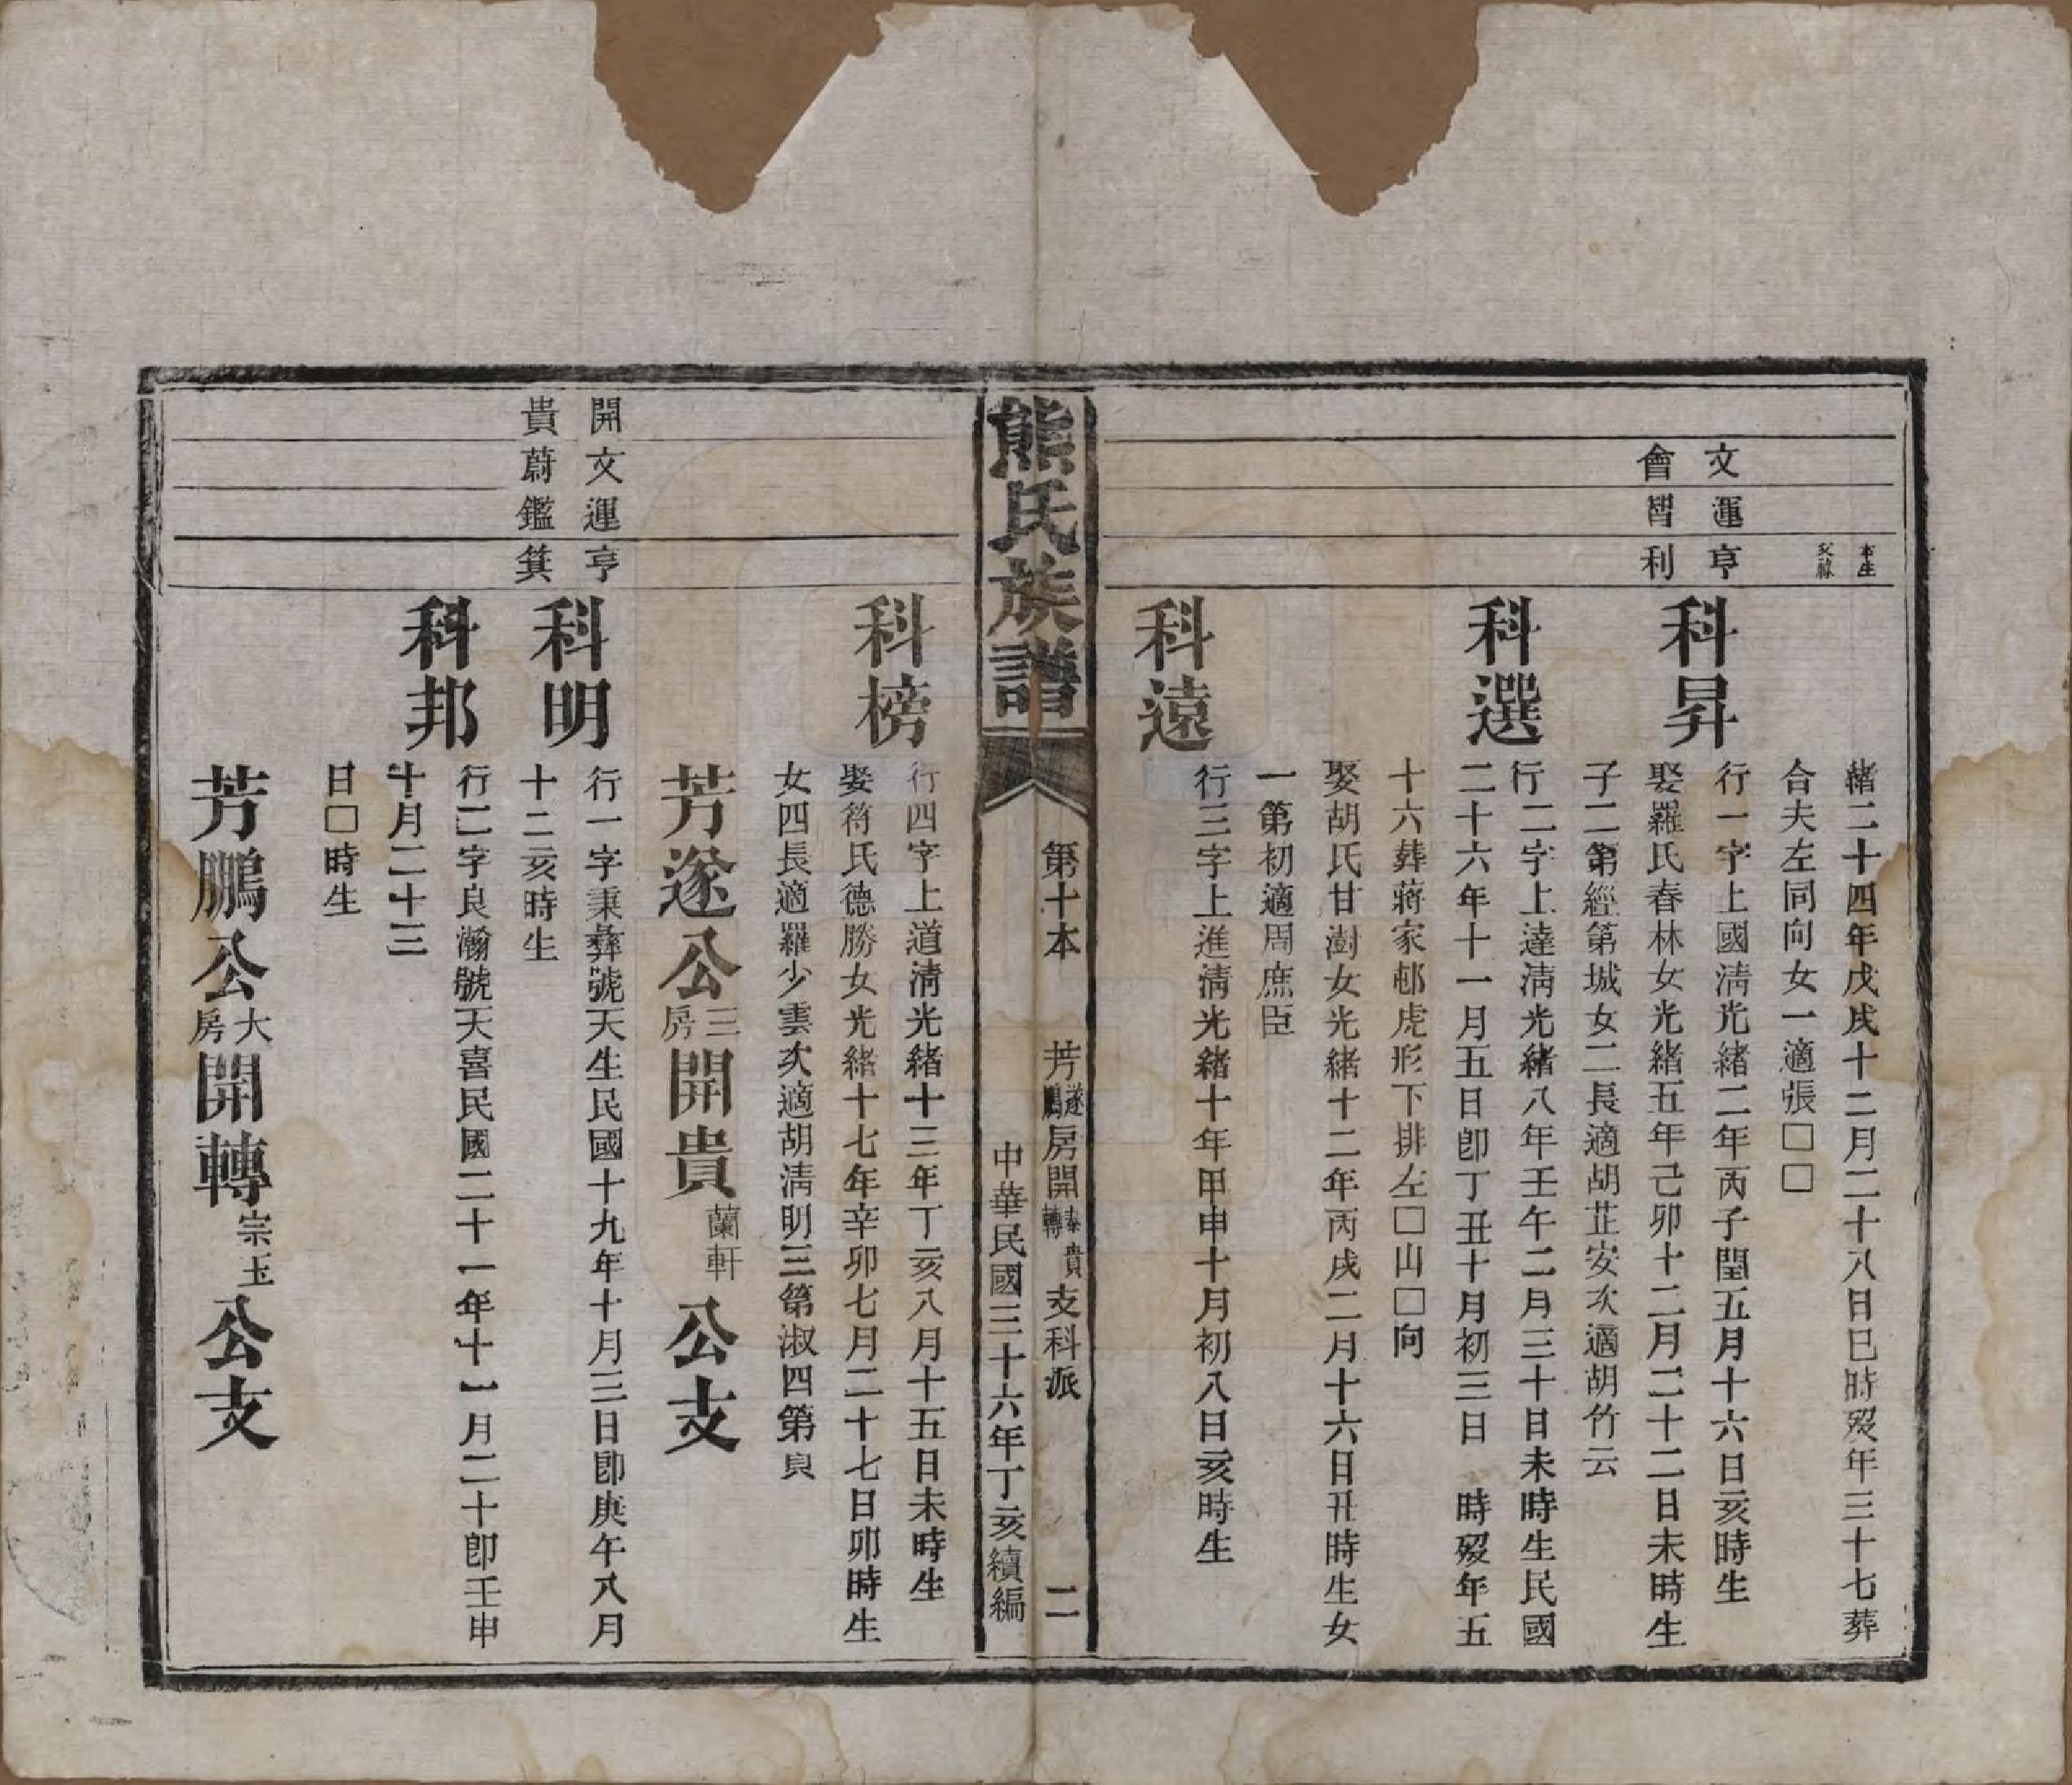 本生
父祿
緒二十四年戊戌十二月二十八日巳時歿年三十七葬
合夫左同向女一適張□□
文運亨
科昇
行一字上國淸光緒二年丙子閏五月十六日亥時生
會智利
娶羅氏春林女光緒五年己卯十二月二十二日未時生
子二第經第城女二長適胡芷安次適胡竹云
科選
行二字上達淸光緒八年壬午二月三十日未時生民國
二十六年十一月五日卽丁丑十月初三日 時歿年五
十六葬蔣家邨虎形下排左□山□向
娶胡氏甘澍女光緒十二年丙戌二月十六日丑時生女
一第初適周庶臣
科遠
行三字上進淸光緒十年甲申十月初八日亥時生
熊氏族譜
第十本 芳遂鵬房開泰貴轉支科派 二
中華民國三十六年丁亥續編
科榜
行四字上道淸光緒十三年丁亥八月十五日未時生
娶符氏德勝女光緒十七年辛卯七月二十七日卯時生
女四長適羅少雲次適胡淸明三第淑四第貞
芳遂公三房開貴蘭軒公支
開文運亨
科明
行一字秉彝號天生民國十九年十月三日卽庚午八月
貴蔚鑑箕
十二亥時生
科邦
行二字良瀚號天喜民國二十一年十一月二十卽壬申
十月二十三
日□時生
芳鵬公大房開轉宗玉公支